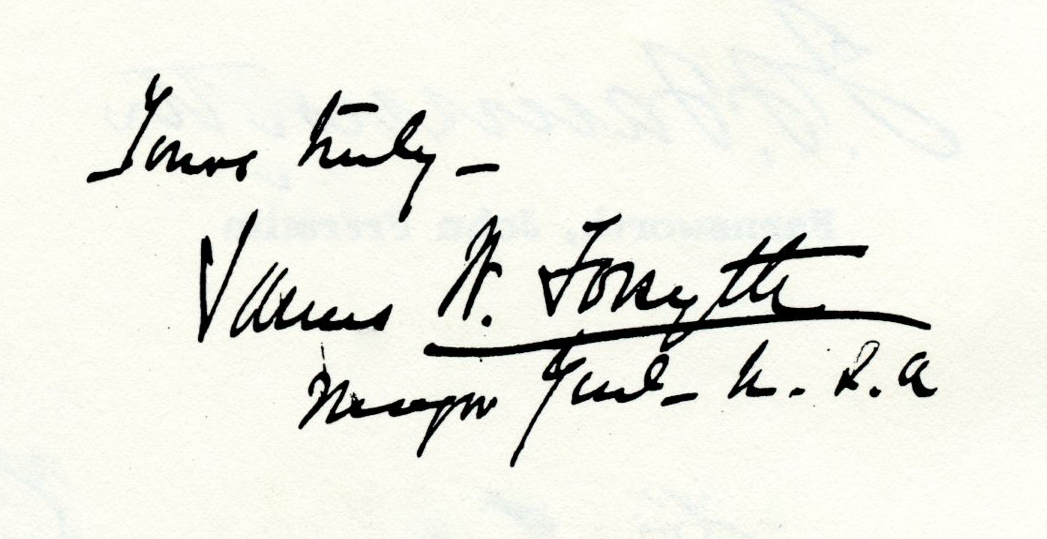 Yours truly –
James W. Forsyth
Major Genl – U. S. A